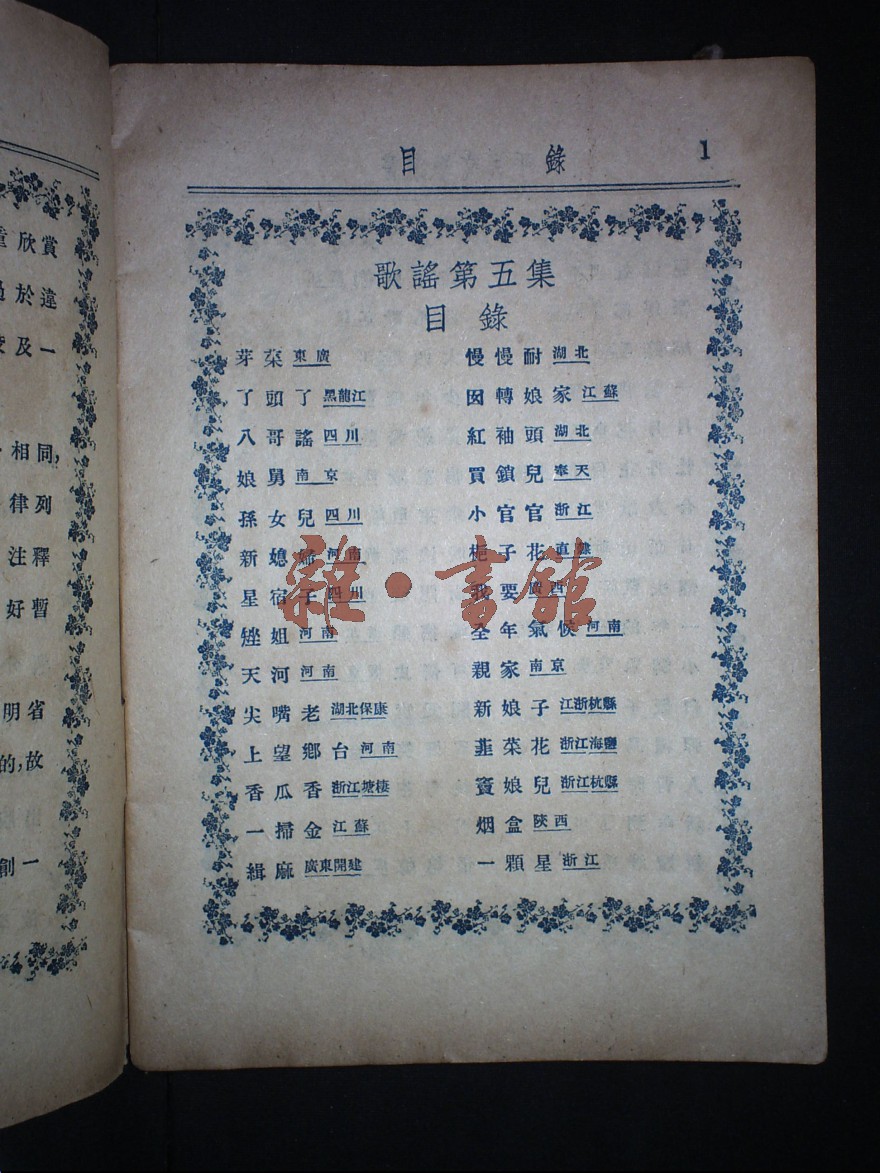 重欣賞
於違
及一
相同,
律列
注釋
好暫
明省
的,故
創一
目 錄 1
歌謠第五集
目錄
芽菜 東廣
了頭了 黑龍江
八哥謠 四川
娘舅 南京
孫女兒 四川
新媳婦 河南
星宿子 四川
矬姐 河南
天河 河南
尖嘴老 湖北保康
上望鄉台 河南
香瓜香 浙江塘棲
一掃金 江蘇
緝麻 廣東開建
慢慢耐 湖北
囡轉娘家 江蘇
紅袖頭 湖北
買鎖兒 奉天
小官官 浙江
梔子花 直隸
我要 廣西
全年氣候 河南
親家 南京
新娘子 江浙杭縣
韮菜花 浙江海鹽
寳娘兒 浙江杭縣
烟盒 陝西
一顆星 浙江
雜·書館